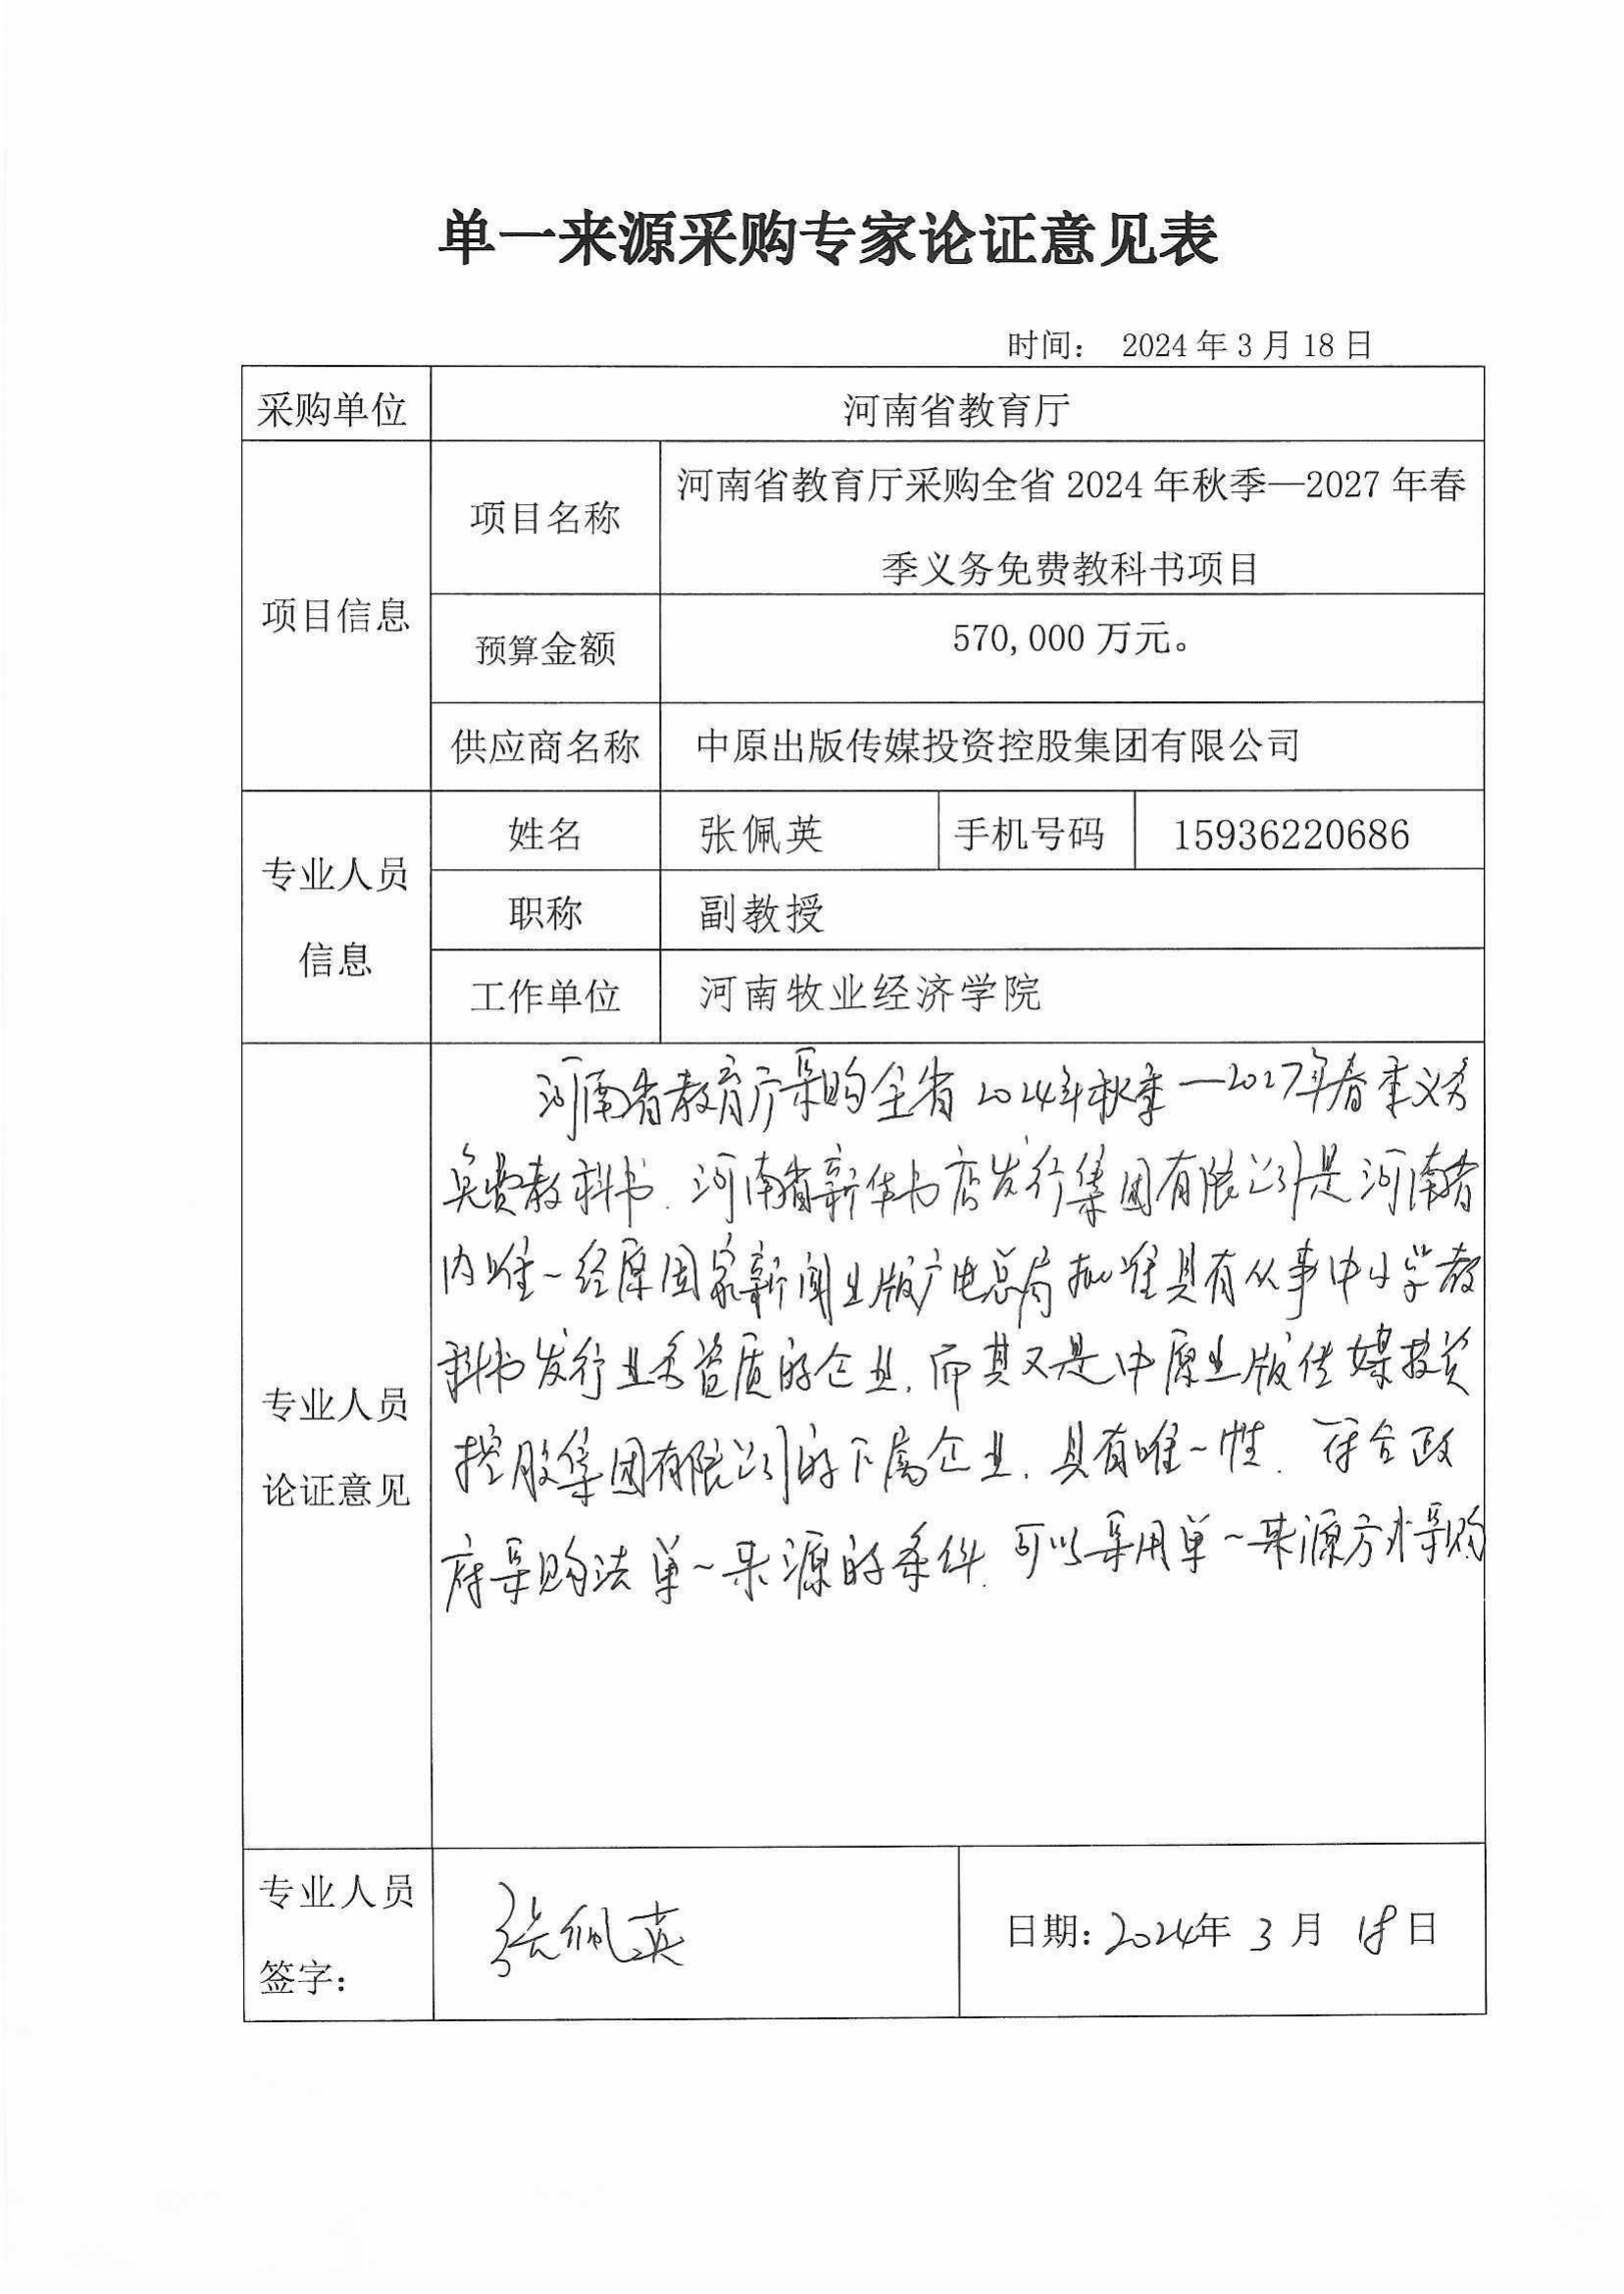 单一来源采购专家论证意见表
时间： 2024年3月18日
采购单位 河南省教育厅
项目信息
项目名称
河南省教育厅采购全省2024年秋季—2027年春
季义务免费教科书项目
预算金额 570,000万元。
供应商名称 中原出版传媒投资控股集团有限公司
专业人员
信息
姓名 张佩英 手机号码 15936220686
职称 副教授
工作单位 河南牧业经济学院
专业人员
论证意见
河南省教育厅采购全省2024年秋季—2027年春季义务
免费教科书.河南省新华书店发行集团有限公司是河南省
内唯一经原国家新闻出版广电总局批准具有从事中小学教
科书发行业务资质的企业,而其又是中原出版传媒投资
控股集团有限公司的下属企业,具有唯一性.符合政
府采购法单一来源的条件.可以采用单一来源方式采购
专业人员
签字：
张佩英
日期:2024年3月18日